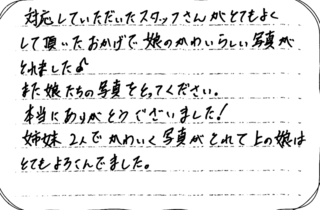 対応していただいたスタッフさんがとてもよく
して頂いたおかげで娘のかわいらしい写真が
とれました♪
また娘たちの写真をとってください。
本当にありがとうございました！
姉妹2人でかわいく写真がとれて上の娘は
とてもよろこんでました。